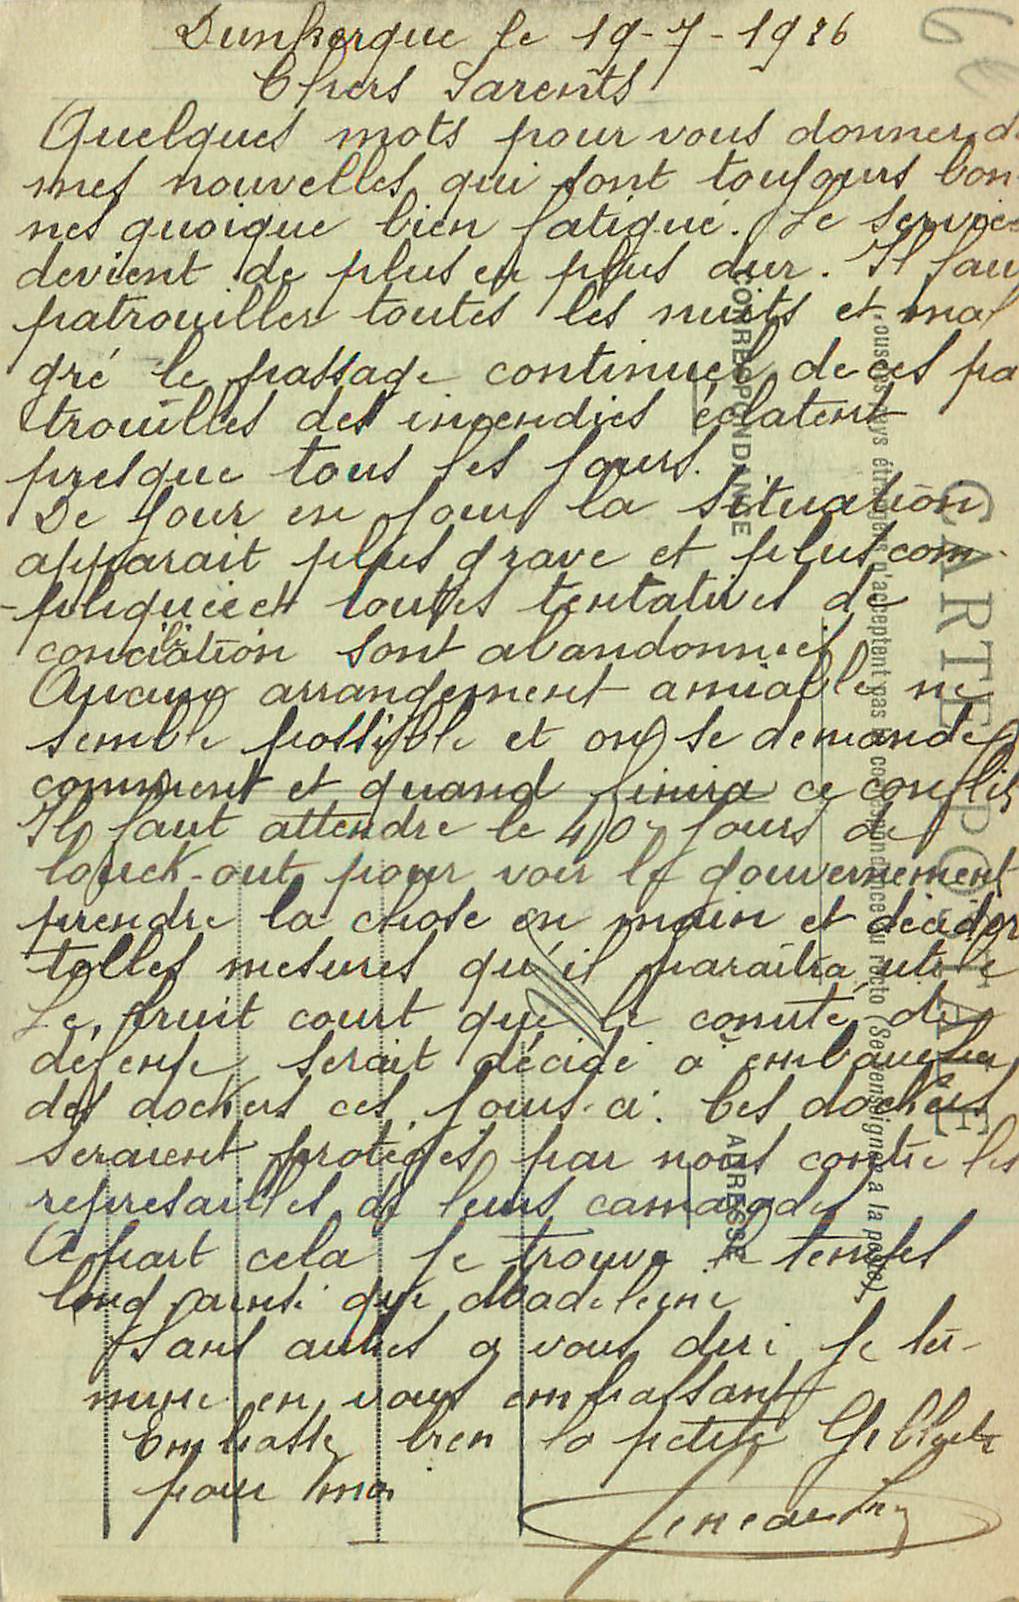 Dunkerque le 19-7-1926
Chers Parents
Quelques mots pour vous donner d
mes nouvelles qui sont toujours bon-
nes quoique bien fatigué. Le service
devient de plus en plus dur. Il fau
patrouiller toutes les nuits et mal
gré le passage continuel de ces pa
trouilles des incendies éclatent
presque tous les jours.
De jour en jour la situation
apparait plus grave et plus com-
-pliquée et toutes tentatives de
conciliation sont abandonnées
Aucun arrangement amiable ne
semble possible et on se demande
comment et quand finira ce conflit
Il faut attendre le 40 jours de
louck-out pour voir le gouvernement
prendre la chose en main et décider
telles mesures qu'il paraîtra utile
Le bruit court que le comité de
défense serait décidé à embaucher
des dockers ces jours-ci. Ces dockers
seraient protégés par nous contre les
represailles de leurs camarades
A part cela je trouve le temps
long ainsi que Madeleine
Sans autres a vous dire je ter-
mine en vous embrassant
Embrasse bien la petite
pour moi
CARTE POSTALE
Tous les pays étrangers n'acceptent pas la correspondance au recto (Se renseigner à la poste)
CORRESPONDANCE
ADRESSE